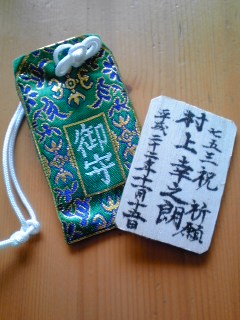 御守
七五三祝 祈願
村上幸之朗
平成二十二年十一月十五日